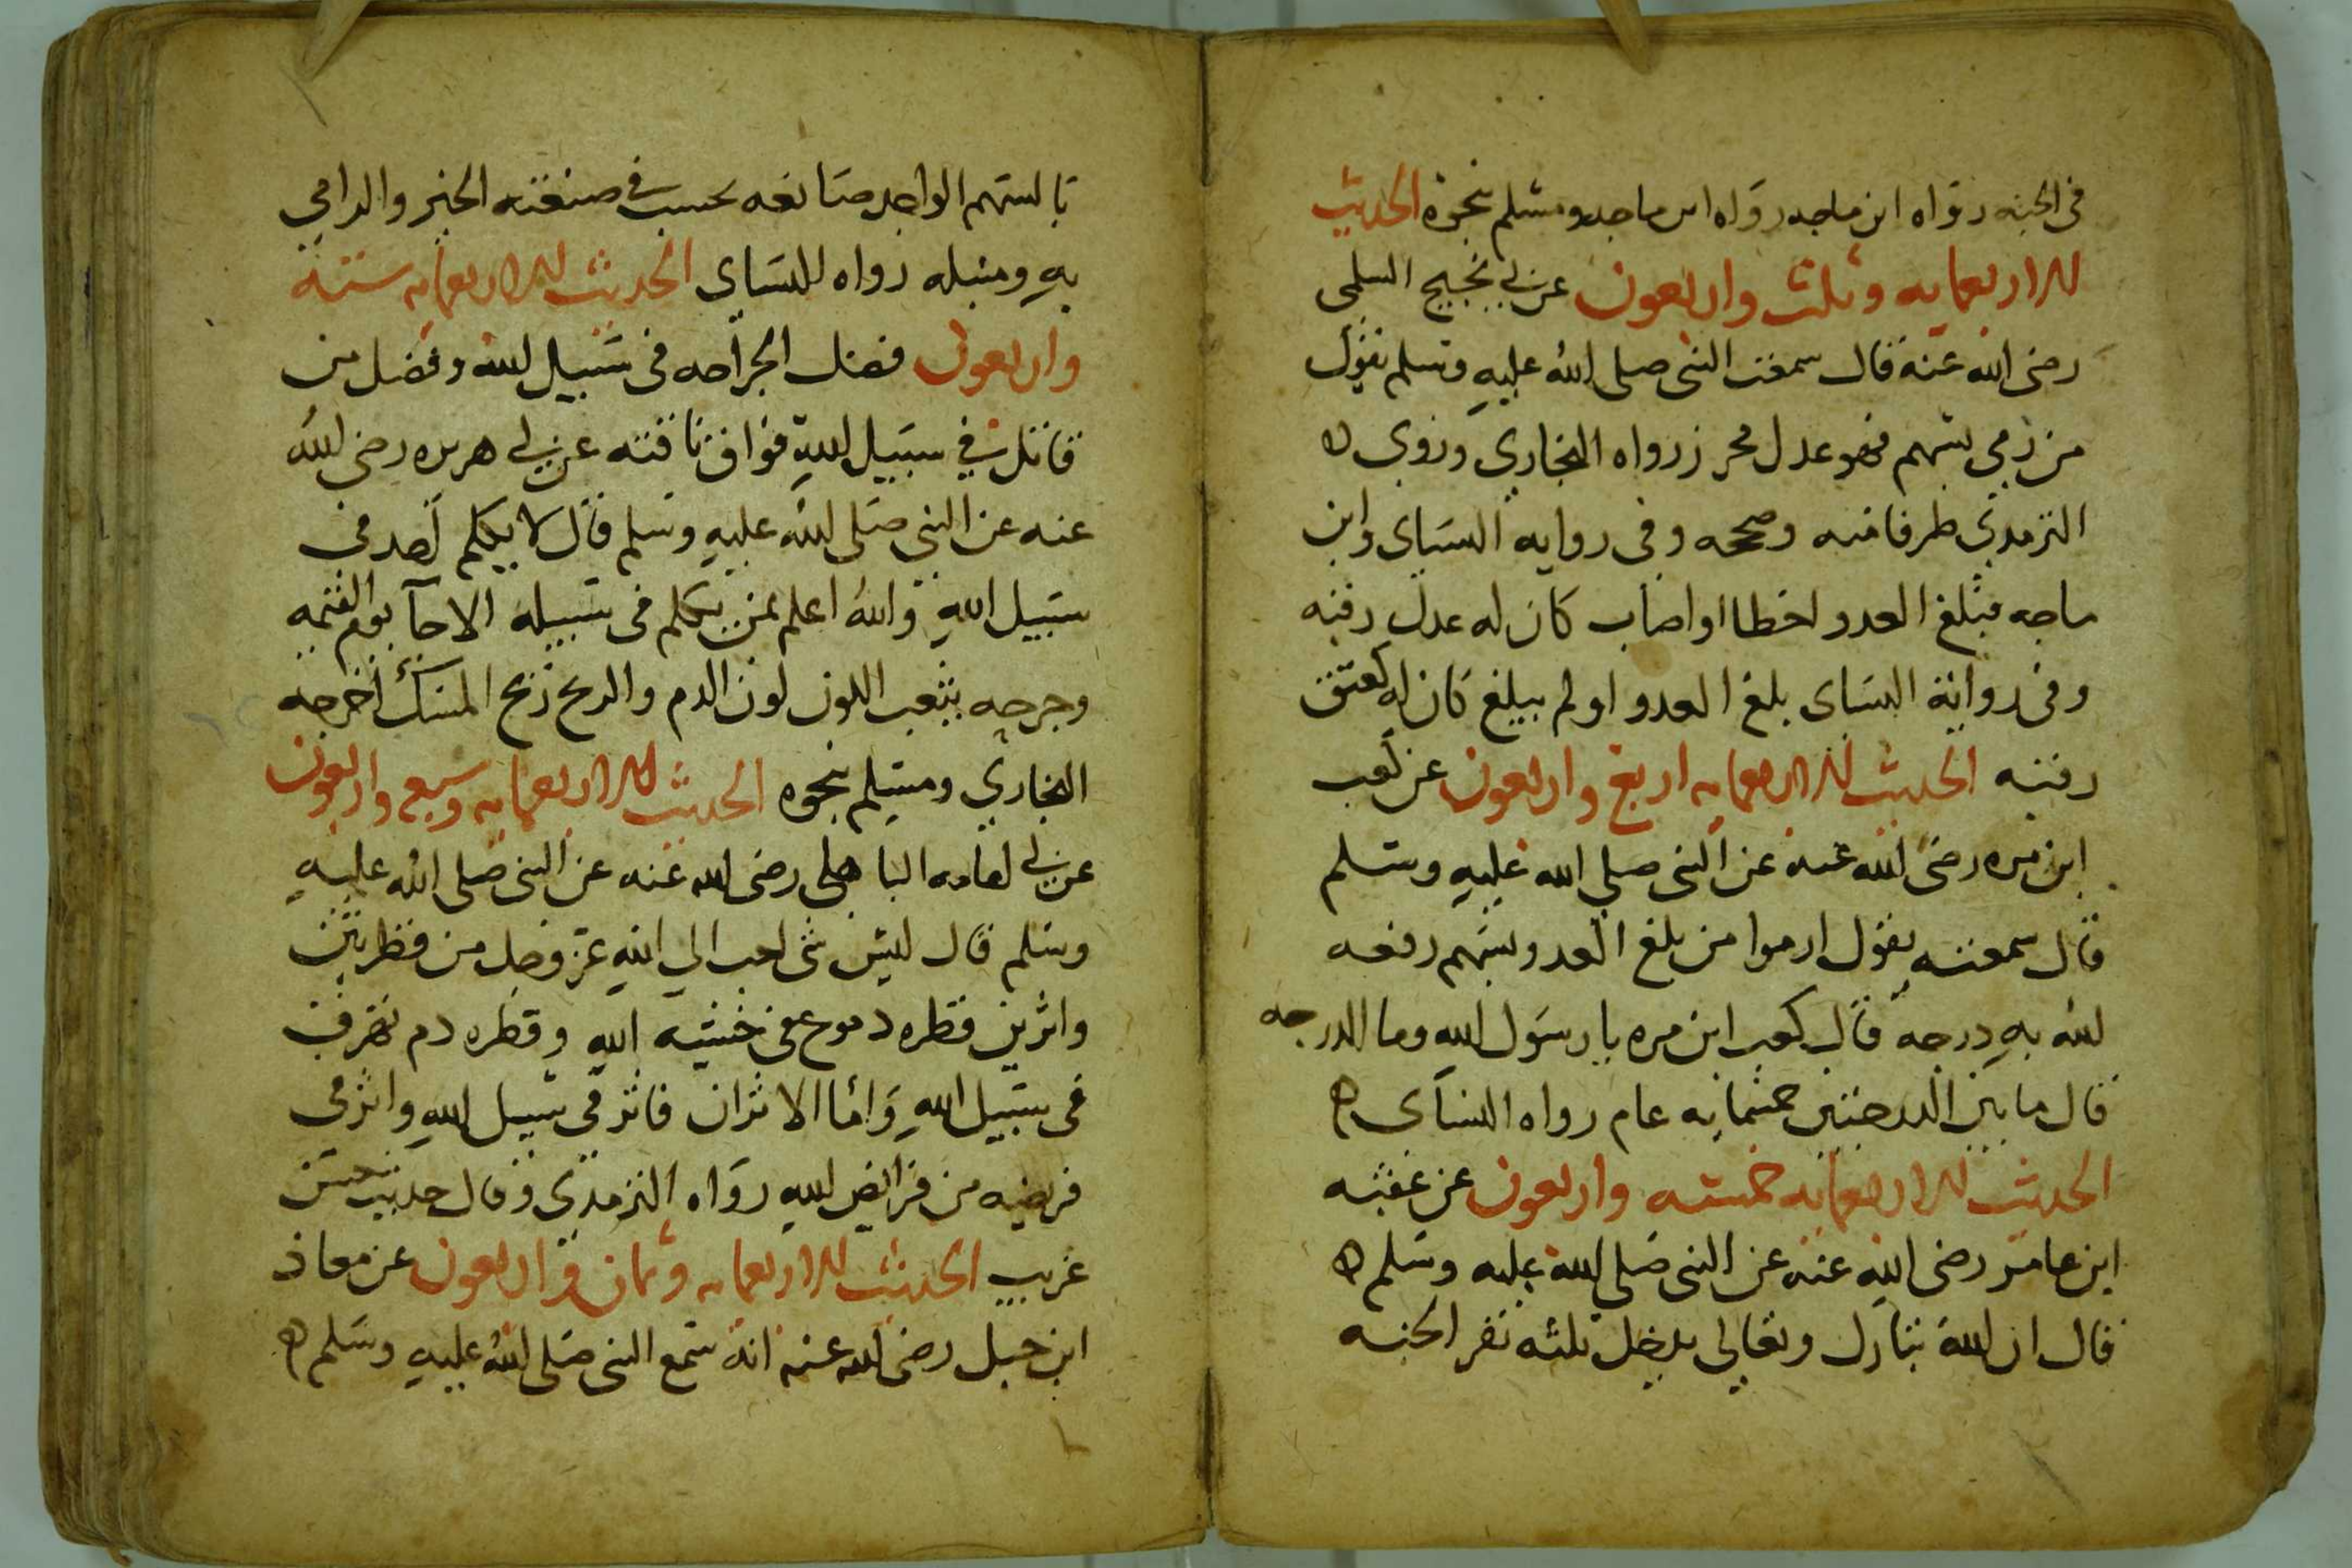 في الجنه رواه ابن ماجه رواه ابن ماجه ومسلم بنحوه الحديث
للاربعمايه وثلث واربعون عن ابي نجيح السلمي
رضي الله عنه قال سمعت النبي صلى الله عليه وسلم يقول
من رمى بسهم فهو عدل محرز رواه البخاري وروى ه
الترمدي طرفا منه وصححه وفي روايه النساي وابن
ماجه فبلغ العدو اخطا او اصاب كان له عدل رقبه
وفي رواية النساى بلغ العدو او لم يبلغ كان له كعتق
رقبه الحديث للاربعمايه اربع واربعون عن كعب
ابن مره رضي الله عنه عن النبي صلى الله عليه وسلم
قال سمعته يقول ارموا من بلغ العدو بسهم رفعه
الله به درجه قال كعب ابن مره يا رسول الله وما الدرجه
قال ما بين الدرجتين خمسمايه عام رواه النساى ه
الحديث للاربعمايه خمسه واربعون عن عقبه
ابن عامر رضي الله عنه عن النبي صلى الله عليه وسلم ه
قال ان الله تبارك وتعالى يدخل ثلثه نفر الجنه
بالسهم الواحد صانعه يحتسب في صنعته الخير والرامي
به ومنبله رواه النساى الحديث للاربعمايه سته
واربعون فضل الجراحه في سبيل الله وفضل من
قاتل في سبيل الله فواق ناقته عن ابي هريره رضي الله
عنه عن النبي صلى الله عليه وسلم قال لا يكلم احد في
سبيل الله والله اعلم بمن يكلم في سبيله الا جآ يوم القيمه
وجرحه يثعب اللون لون الدم والريح ريح المسك اخرجه
البخاري ومسلم بنحوه الحديث للاربعمايه وسبع واربعون
عن ابي امامه الباهلي رضي الله عنه عن النبي صلى الله عليه
وسلم قال ليس شى احب الي الله عز وجل من قطرتين
واثرين قطره دموع من خشيه الله وقطره دم تهرق
في سبيل الله واما الاثران فاثر في سبيل الله واثر في
فريضه من فرايض الله رواه الترمدي وقال حديث حسن
غريب الحديث للاربعمايه وثمان واربعون عن معاذ
ابن جبل رضي الله عنه انه سمع النبي صلى الله عليه وسلم ه